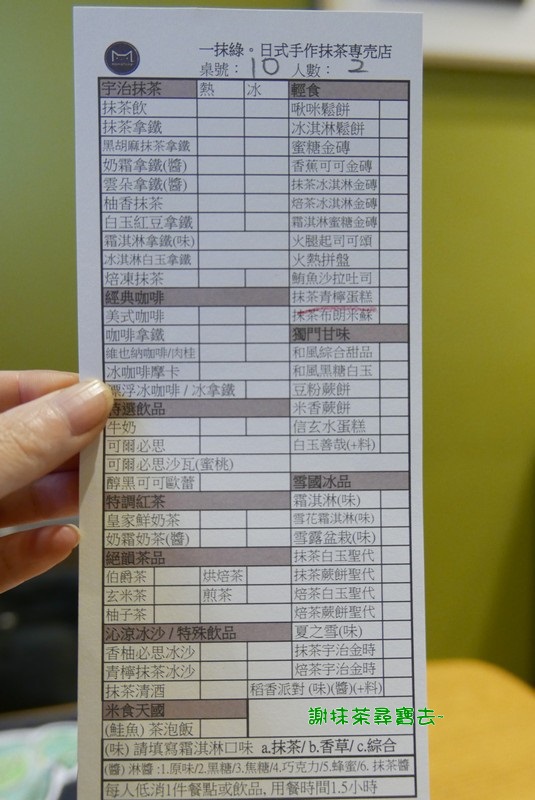 一抹綠。日式手作抹茶專売店
桌號：10 人數：2
宇治抹茶 熱 冰
抹茶飲
抹茶拿鐵
黑胡麻抹茶拿鐵
奶霜拿鐵(醬)
雲朵拿鐵(醬)
柚香抹茶
白玉紅豆拿鐵
霜淇淋拿鐵(味)
冰淇淋白玉拿鐵
焙凍抹茶
經典咖啡
美式咖啡
咖啡拿鐵
維也納咖啡/肉桂
冰咖啡摩卡
漂浮冰咖啡 / 冰拿鐵
特選飲品
牛奶
可爾必思
可爾必思沙瓦(蜜桃)
醇黑可可歐蕾
特調紅茶
皇家鮮奶茶
奶霜奶茶(醬)
絕韻茶品
伯爵茶 烘焙茶
玄米茶 煎茶
柚子茶
沁涼冰沙 / 特殊飲品
香柚必思冰沙
青檸抹茶冰沙
抹茶清酒
米食天國
(鮭魚) 茶泡飯
輕食
啾咪鬆餅
冰淇淋鬆餅
蜜糖金磚
香蕉可可金磚
抹茶冰淇淋金磚
焙茶冰淇淋金磚
霜淇淋蜜糖金磚
火腿起司可頌
火熱拼盤
鮪魚沙拉吐司
抹茶青檸蛋糕
抹茶布朗米蘇
獨門甘味
和風綜合甜品
和風黑糖白玉
豆粉蕨餅
米香蕨餅
信玄水蛋糕
白玉善哉(+料)
雪國冰品
霜淇淋(味)
雪花霜淇淋(味)
雪露盆栽(味)
抹茶白玉聖代
抹茶蕨餅聖代
焙茶白玉聖代
焙茶蕨餅聖代
夏之雪(味)
抹茶宇治金時
焙茶宇治金時
稻香派對 (味)(醬)(+料)
謝抹茶尋寶去~
(味) 請填寫霜淇淋口味 a.抹茶/ b.香草/ c.綜合
(醬) 淋醬 :1.原味/2.黑糖/3.焦糖/4.巧克力/5.蜂蜜/6. 抹茶醬
每人低消1件餐點或飲品, 用餐時間1.5小時